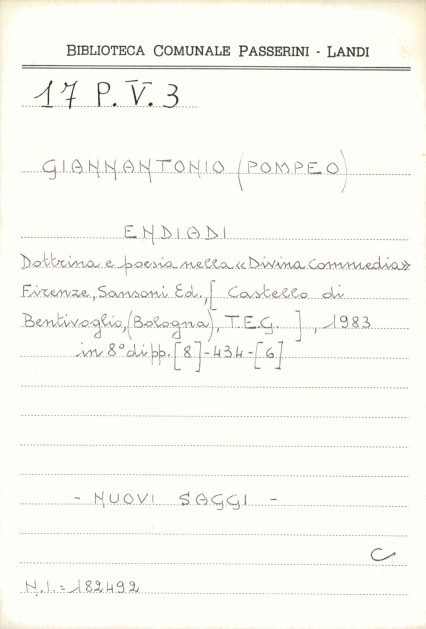 BIBLIOTECA COMUNALE PASSERINI - LANDI
17 P. V. 3
GIANNANTONIO (POMPEO)
ENDIADI
Dottrina e poesia nella «Divina Commedia»
Firenze, Sansoni Ed., [ Castello di
Bentivoglio, (Bologna), T.E.G. ] , 1983
in 8° di pp. [8]-434-[6]
- NUOVI SAGGI -
C
N.I. = 182492